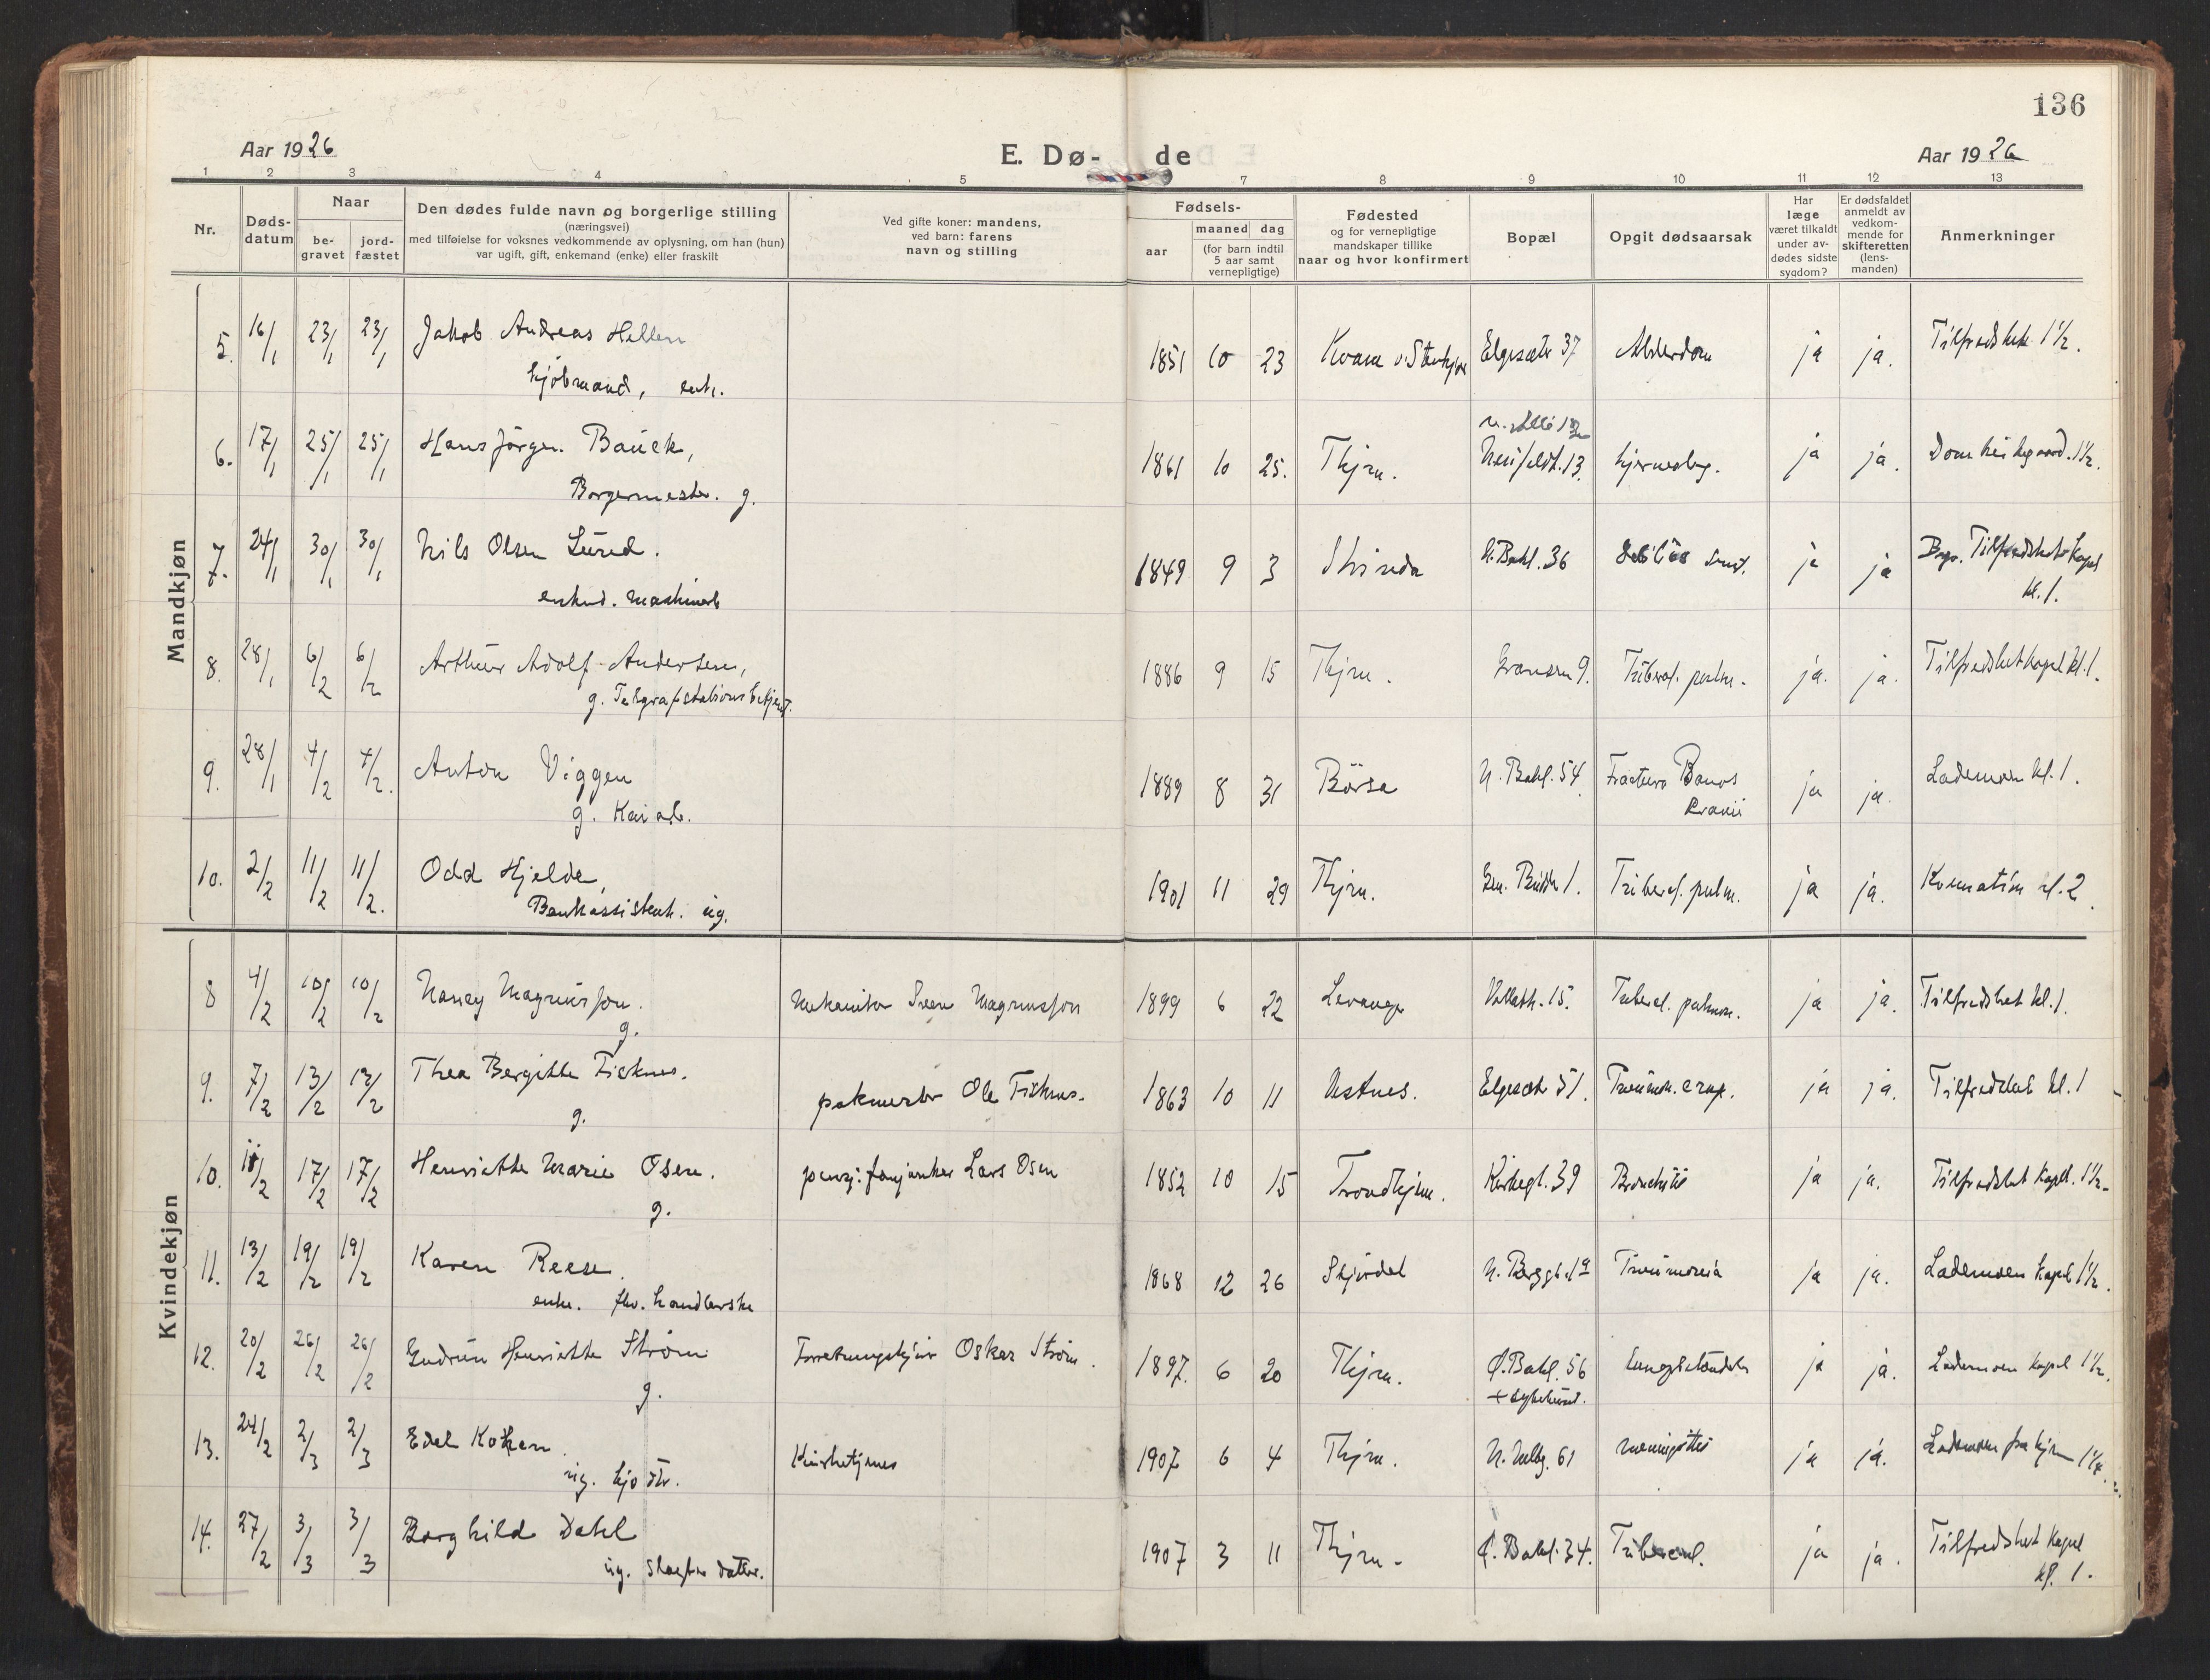 136
Aar 1926
E. Dø- de
Aar 1926
1 2 3 4 5 7 8 9 10 11 12 13
Nr.
Døds-
datum
Naar
be-
gravet
jord-
fæstet
Den dødes fulde navn og borgerlige stilling
(næringsvei)
med tilføielse for voksnes vedkommende av oplysning, om han (hun)
var ugift, gift, enkemand (enke) eller fraskilt
Ved gifte koner: mandens,
ved barn: farens
navn og stilling
Fødsels-
aar
maaned dag
(for barn indtil
5 aar samt
vernepligtige)
Fødested
og for vernepligtige
mandskaper tillike
naar og hvor konfirmert
Bopæl
Opgit dødsaarsak
Har
læge
været tilkaldt
under av-
dødes sidste
sygdom?
Er dødsfaldet
anmeldt av
vedkom-
mende for
skifteretten
(lens-
manden)
Anmerkninger
Mandkjøn
5. 16/1 23/1 23/1 Jakob Andreas Hellem 1851 10 23 Kvam Elgesæter 37 Alderdom ja ja. Tilfredshet 1½.
kjöbmand, enk.
6. 17/1 25/1 25/1 Hans Jörgen Bauck, 1861 10 25. Thjm. 13. ja ja. Domkirkegaard. 1½.
Borgermester. g.
7. 24/1 30/1 30/1 Nils Olsen Lund. 1849 9 3 Strinda N. Bakl. 36 ja ja Tilfredshets Kapel
kl. 1.
enkmd. maskinist
8. 28/1 6/2 6/2 Arthur Adolf Andersen, 1886 9 15 Thjm. 9. Tuberul. pulm. ja. ja. Tilfredshet kapel kl. 1.
g. Telegrafstationsbetjent.
9. 28/1 4/2 4/2. Anton Viggen 1889 8 31 Börsa N. Bakl. 54 Fractura Basis ja ja. Lademoen kl. 1.
Cranii
g. Kaiarb.
10. 2/2 11/2 11/2. Odd Hjelde, 1901 11 29 Thjm. 1. Tubercl. pulm. ja ja. Krematin kl. 2.
Bankassistent. ug.
Kvindekjøn
8 4/2 10/2 10/2 Nancy Magnusson. Mekaniker Sven Magnusson 1899 6 22 Levanger Vollabk. 15. Tubercl. pulmon. ja ja. Tilfredshet kl. 1.
g.
9. 7/2 13/2 13/2 Thea Bergitte Fisknes. pakmester Ole Fisknes. 1863 10 11 Elgesæt 51. ja ja. Tilfredshet kl. 1
g.
10. 11/2 17/2 17/2 Henriette Marie Osen. pensj. fanejunker Lars Osen 1852 10 15 Trondhjem. Kirkegt. 39 Bronchitis ja ja. Tilfredshet Kapel. 1½.
g.
11. 13/2 19/2 19/2 Karen Reese. 1868 12 26 Stjördal Pneumonia ja ja. Lademoen Kapel 1½.
enke. fhv. handlerske
12. 20/2 26/2 26/2 Gudrun Henriette Ström Oskar Ström. 1897. 6 20 Thjm. Ø. Bakl. 56 Lungebetændelse ja ja. Lademoen Kapel 1½.
+ sykehuset.
g.
13. 24/2 2/3 2/3 Edel Koken. Kirketjener 1907 6 4 Thjm. 61 meningitis ja ja. Lademoen 1¼.
ug.
14. 27/2 3/3 3/3 Borghild Dahl 1907 3 11 Thjm. Ø. Bakl. 34. Tubercul. ja ja. Tilfredshet Kapel
kl. 1.
ug. Slagter datter.